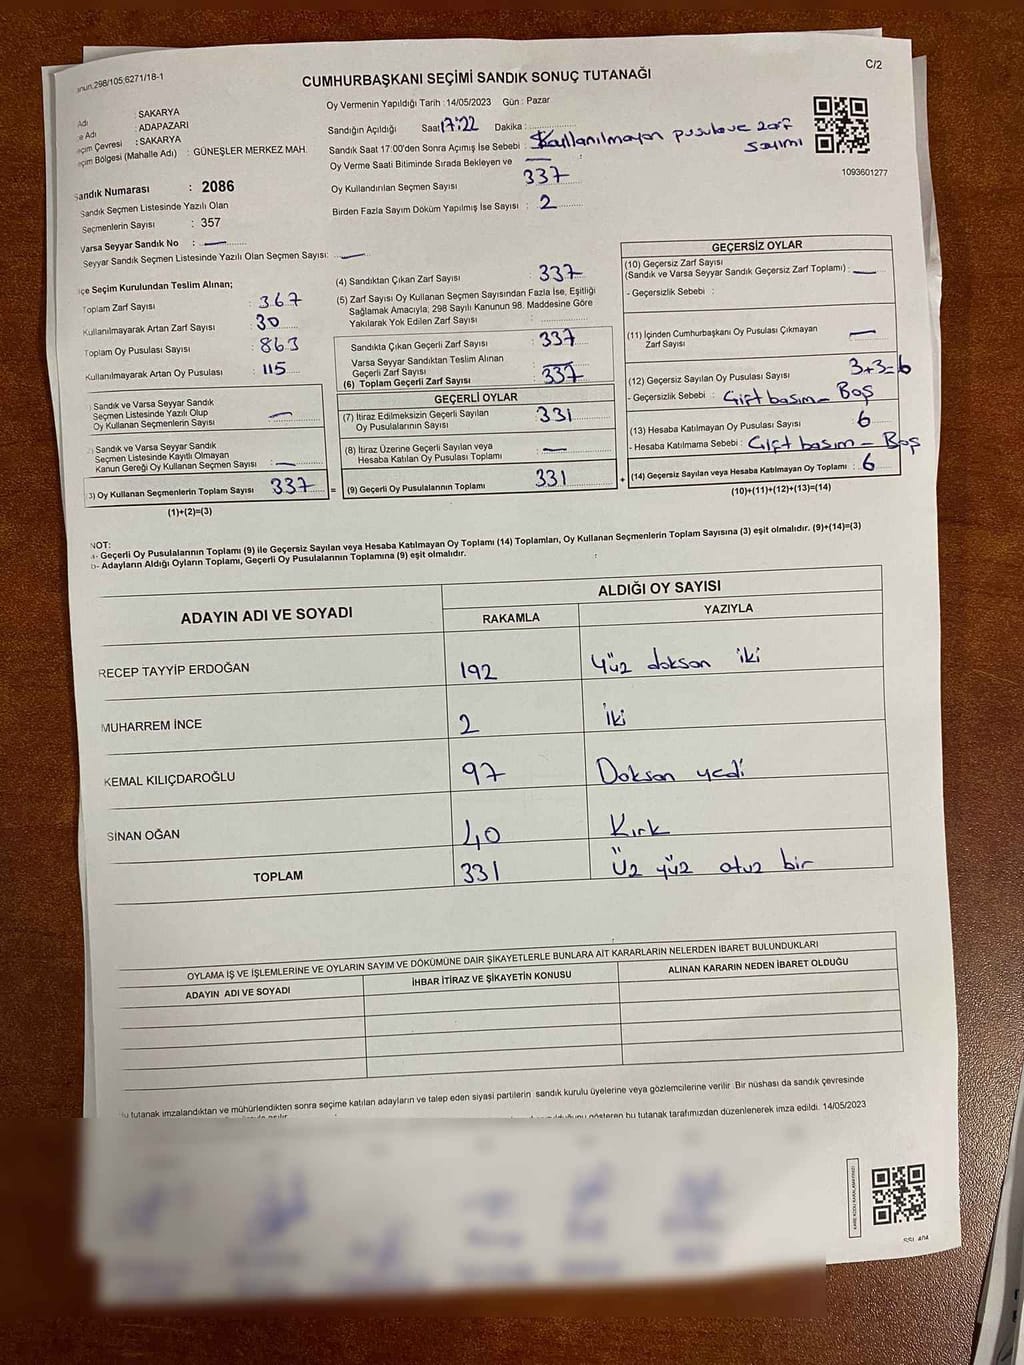 298/105;6271/18-1
C/2
CUMHURBAŞKANI SEÇİMİ SANDIK SONUÇ TUTANAĞI
Adı : SAKARYA
e Adı : ADAPAZARI
çim Çevresi : SAKARYA
çim Bölgesi (Mahalle Adı) : GÜNEŞLER MERKEZ MAH.
Sandık Numarası : 2086
Sandık Seçmen Listesinde Yazılı Olan
Seçmenlerin Sayısı : 357
Varsa Seyyar Sandık No : —
Seyyar Sandık Seçmen Listesinde Yazılı Olan Seçmen Sayısı: —
Oy Vermenin Yapıldığı Tarih : 14/05/2023 Gün : Pazar
Sandığın Açıldığı Saat 17:22 Dakika :
Sandık Saat 17:00'den Sonra Açımış İse Sebebi : Kullanılmayan pusula ve zarf
sayımı
Oy Verme Saati Bitiminde Sırada Bekleyen ve —
Oy Kullandırılan Seçmen Sayısı 337
Birden Fazla Sayım Döküm Yapılmış İse Sayısı : 2
1093601277
lçe Seçim Kurulundan Teslim Alınan;
Toplam Zarf Sayısı : 367
Kullanılmayarak Artan Zarf Sayısı : 30
Toplam Oy Pusulası Sayısı : 863
Kullanılmayarak Artan Oy Pusulası : 115
) Sandık ve Varsa Seyyar Sandık
Seçmen Listesinde Yazılı Olup
Oy Kullanan Seçmenlerin Sayısı : —
2) Sandık ve Varsa Seyyar Sandık
Seçmen Listesinde Kayıtlı Olmayan
Kanun Gereği Oy Kullanan Seçmen Sayısı : —
3) Oy Kullanan Seçmenlerin Toplam Sayısı 337 =
(1)+(2)=(3)
(4) Sandıktan Çıkan Zarf Sayısı : 337
(5) Zarf Sayısı Oy Kullanan Seçmen Sayısından Fazla İse, Eşitliği
Sağlamak Amacıyla; 298 Sayılı Kanunun 98. Maddesine Göre
Yakılarak Yok Edilen Zarf Sayısı :
Sandıkta Çıkan Geçerli Zarf Sayısı : 337
Varsa Seyyar Sandıktan Teslim Alınan
Geçerli Zarf Sayısı : —
(6) Toplam Geçerli Zarf Sayısı : 337
GEÇERLİ OYLAR
(7) İtiraz Edilmeksizin Geçerli Sayılan
Oy Pusulalarının Sayısı : 331
(8) İtiraz Üzerine Geçerli Sayılan veya
Hesaba Katılan Oy Pusulası Toplamı : —
(9) Geçerli Oy Pusulalarının Toplamı : 331 +
GEÇERSİZ OYLAR
(10) Geçersiz Zarf Sayısı
(Sandık ve Varsa Seyyar Sandık Geçersiz Zarf Toplamı) : —
- Geçersizlik Sebebi :
(11) İçinden Cumhurbaşkanı Oy Pusulası Çıkmayan
Zarf Sayısı : —
(12) Geçersiz Sayılan Oy Pusulası Sayısı : 3+3=6
- Geçersizlik Sebebi : Çift basım - Boş
(13) Hesaba Katılmayan Oy Pusulası Sayısı : 6
- Hesaba Katılmama Sebebi : Çift basım - Boş
(14) Geçersiz Sayılan veya Hesaba Katılmayan Oy Toplamı : 6
(10)+(11)+(12)+(13)=(14)
NOT:
a- Geçerli Oy Pusulalarının Toplamı (9) ile Geçersiz Sayılan veya Hesaba Katılmayan Oy Toplamı (14) Toplamları, Oy Kullanan Seçmenlerin Toplam Sayısına (3) eşit olmalıdır. (9)+(14)=(3)
b- Adayların Aldığı Oyların Toplamı, Geçerli Oy Pusulalarının Toplamına (9) eşit olmalıdır.
ADAYIN ADI VE SOYADI ALDIĞI OY SAYISI
RAKAMLA YAZIYLA
RECEP TAYYİP ERDOĞAN 192 Yüz doksan iki
MUHARREM İNCE 2 iki
KEMAL KILIÇDAROĞLU 97 Doksan yedi
SİNAN OĞAN 40 Kırk
TOPLAM 331 Üz yüz otuz bir
OYLAMA İŞ VE İŞLEMLERİNE VE OYLARIN SAYIM VE DÖKÜMÜNE DAİR ŞİKAYETLERLE BUNLARA AİT KARARLARIN NELERDEN İBARET BULUNDUKLARI
ADAYIN ADI VE SOYADI İHBAR İTİRAZ VE ŞİKAYETİN KONUSU ALINAN KARARIN NEDEN İBARET OLDUĞU
u tutanak imzalandıktan ve mühürlendikten sonra seçime katılan adayların ve talep eden siyasi partilerin sandık kurulu üyelerine veya gözlemcilerine verilir .Bir nüshası da sandık çevresinde
gösteren bu tutanak tarafımızdan düzenlenerek imza edildi. 14/05/2023